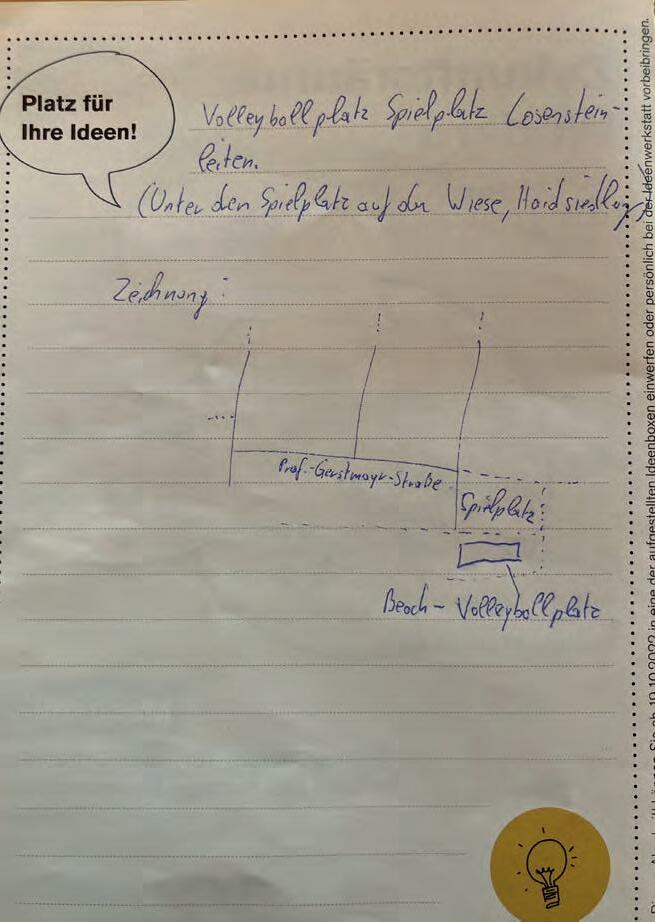 Platz für
Ihre Ideen!
Volleyballplatz Spielplatz Losenstein-
leiten.
(Unter den Spielplatz auf der Wiese, Haidsiedlung)
Zeichnung:
Prof.-Gerstmayr-Straße
Spielplatz
Beach-Volleyballplatz
in eine der aufgestellten Ideenboxen einwerfen oder persönlich bei der Ideenwerkstatt vorbeibringen.